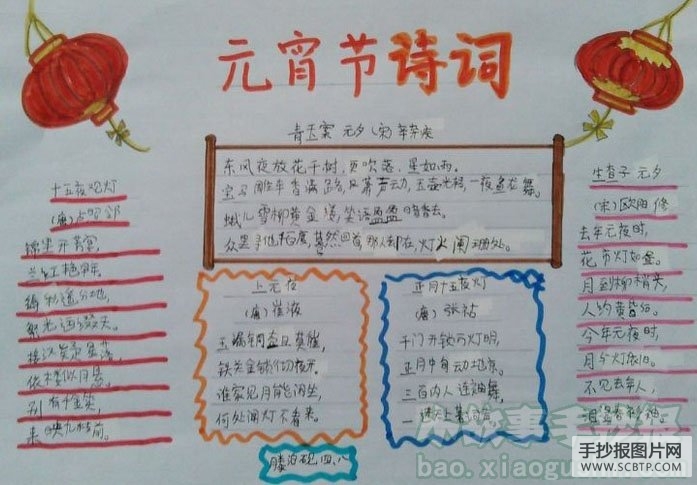 元宵节诗词
青玉案 元夕 (宋)辛弃疾
东风夜放花千树,更吹落,星如雨。
宝马雕车香满路,凤箫声动,玉壶光转,一夜鱼龙舞。
蛾儿雪柳黄金缕,笑语盈盈暗香去。
众里寻他千百度,蓦然回首,那人却在,灯火阑珊处。
十五夜观灯
(唐)卢照邻
锦里开芳宴,
兰缸艳早年。
缛彩遥分地,
繁光远缀天。
接汉疑星落,
依楼似月悬。
别有千金笑,
来映九枝前。
上元夜
(唐)崔液
玉漏
铁关金锁彻夜开
谁家见月能闲坐,
何处闻灯不看来。
正月十五夜灯
(唐)张祜
千门开锁万灯明,
正月中旬动地京。
三百内人连袖舞,
一
生查子 元夕
(宋)欧阳修
去年元夜时,
花市灯如昼。
月到柳梢头,
人约黄昏后。
今年元夜时,
月与灯依旧。
不见去年人,
泪湿春衫袖。
四、八
小故事手抄报
bao.xiaogu
手抄报图片网
www.SCBTP.COM